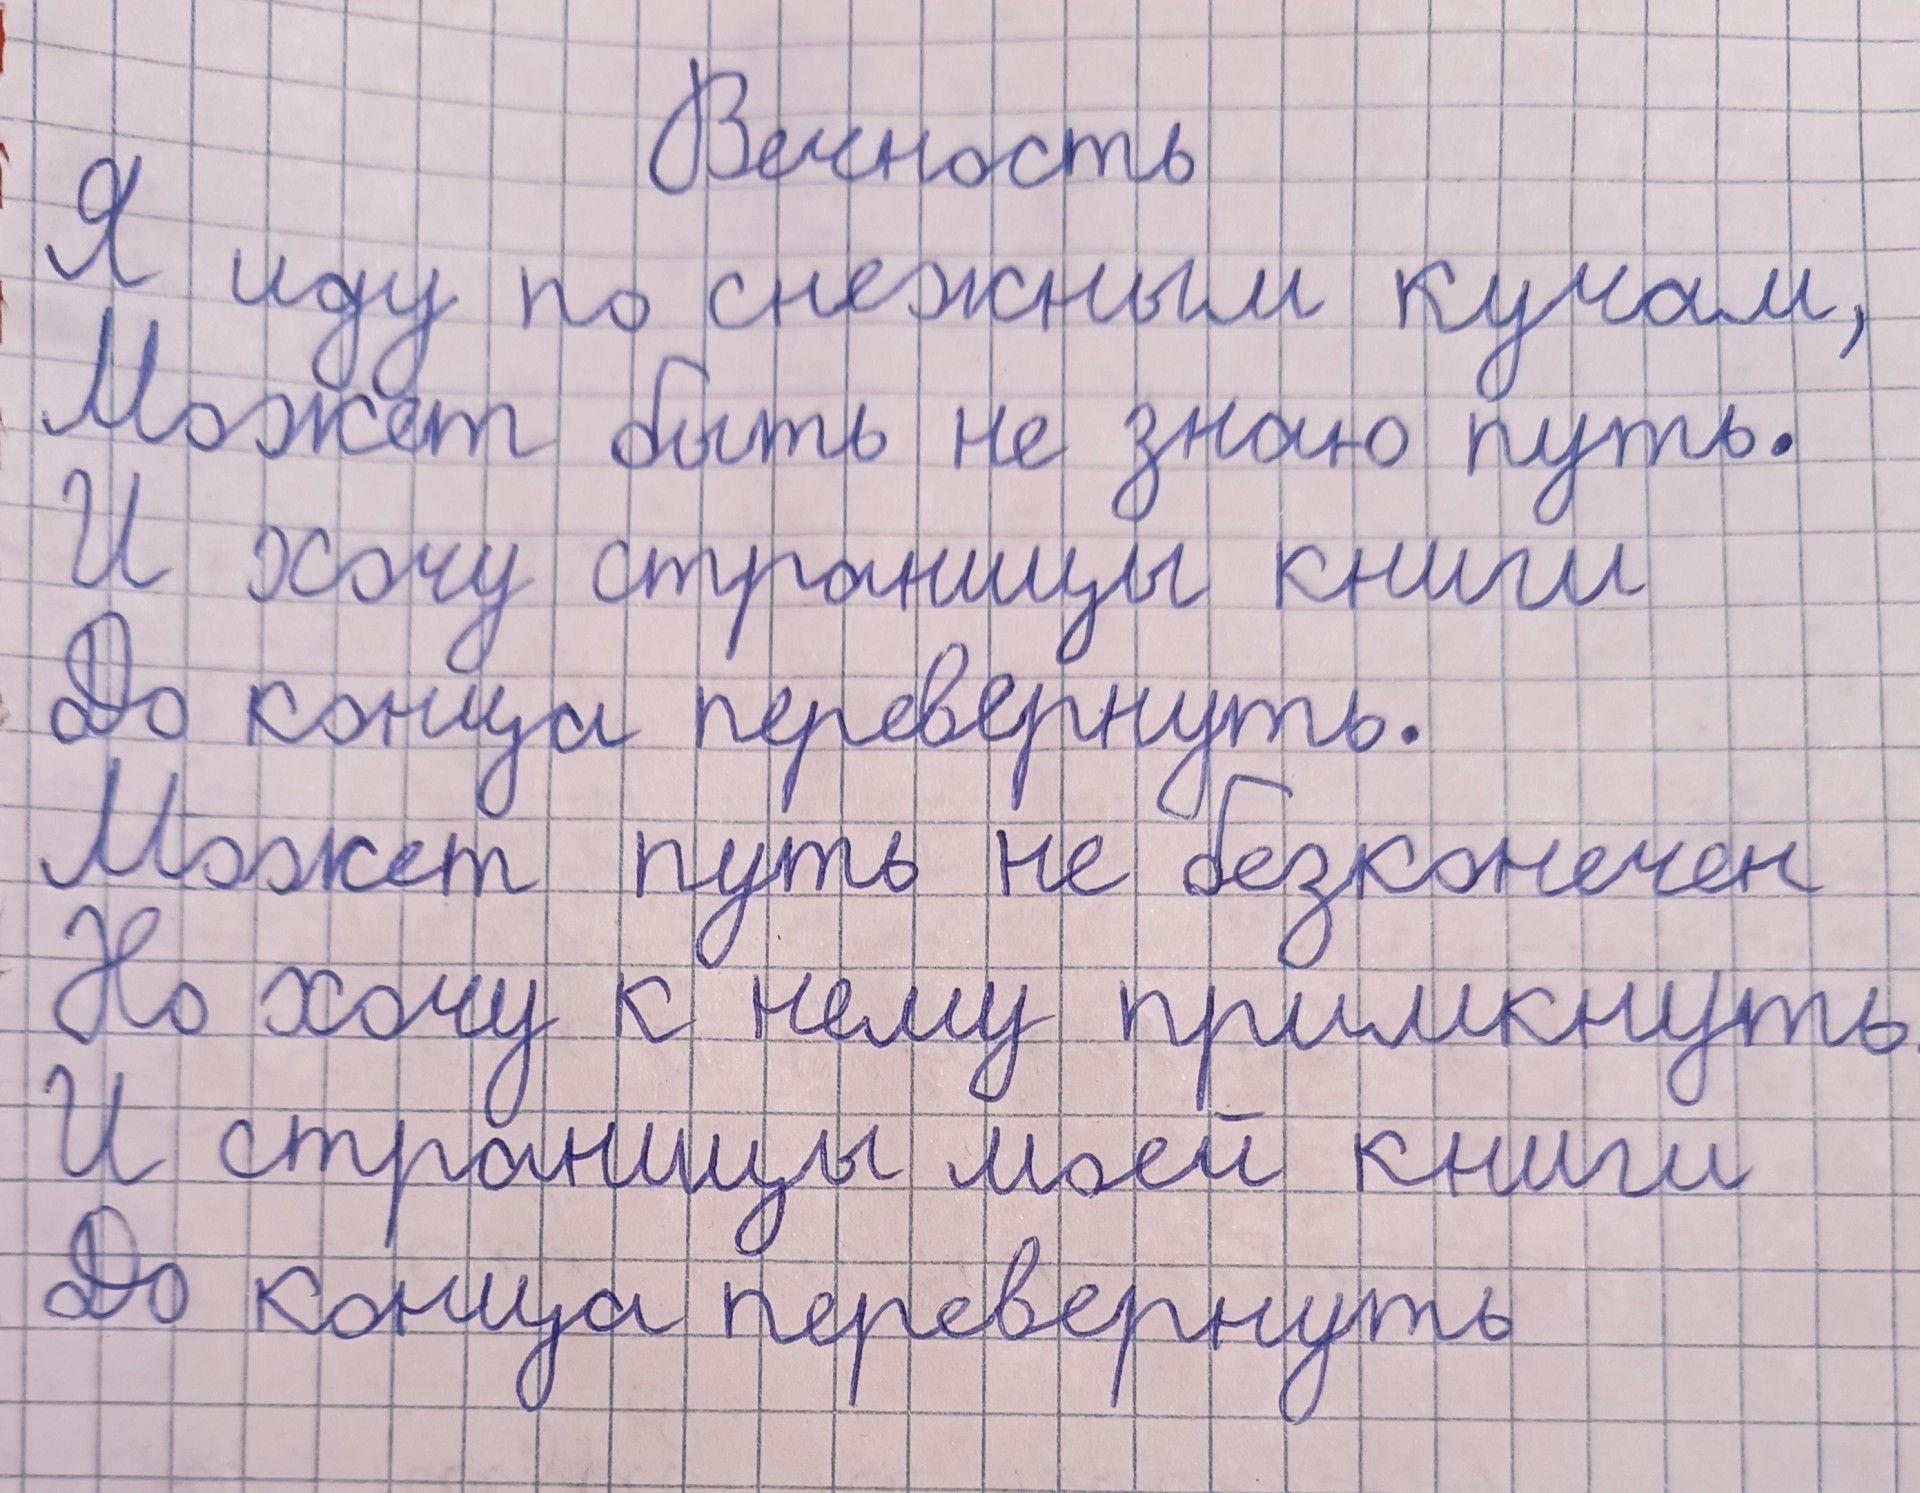 Вечность
Я иду по снежным кучам,
Может быть не знаю путь.
И хочу страницы книги
До конца перевернуть.
Может путь не безконечен
Но хочу к нему примкнуть.
И страницы моей книги
До конца перевернуть